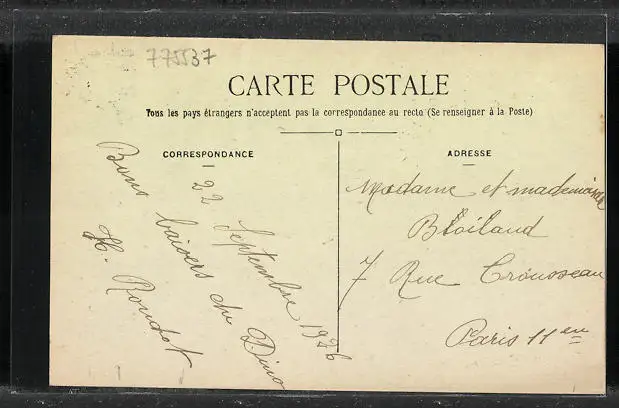 775537
CARTE POSTALE
Tous les pays étrangers n'acceptent pas la correspondance au recto (Se renseigner à la Poste)
CORRESPONDANCE
22 Septembre 1926
Bons baisers du
H. Roudot
ADRESSE
Madame et mademoiselle
7 Rue Crousseau
Paris 11 em